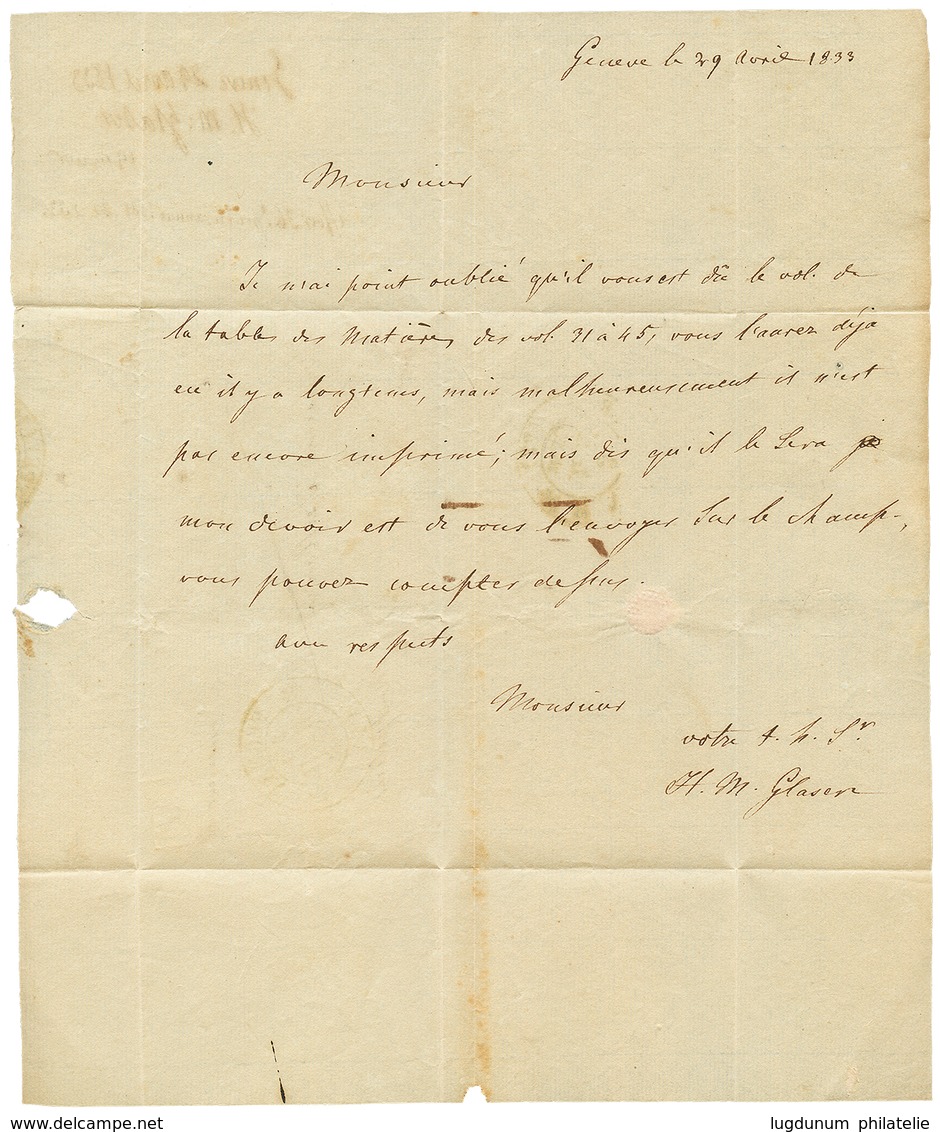 Geneve le 29 Avril 1833
Monsieur
Je n'ai point oublié qu'il vous est dû le vol. de
la table des Matières des vol. 31 à 45, vous l'aurez déja
eu il y a longtems, mais malheureusement il n'est
pas encore imprimé; mais dès qu'il le sera
mon devoir est de vous l'envoyer sur le champ,
vous pouvez compter dessus.
avec respects
Monsieur
votre t. h. Sr
H. M. Glaser
www.delcampe.net
lugdunum philatelie